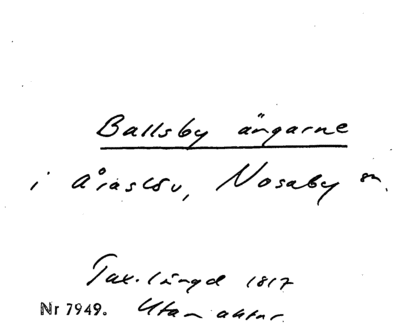 Ballsby ängarne
i Åraslöv, Nosaby sn.
Tax.längd 1817
Nr 7949. Utan aktnr.